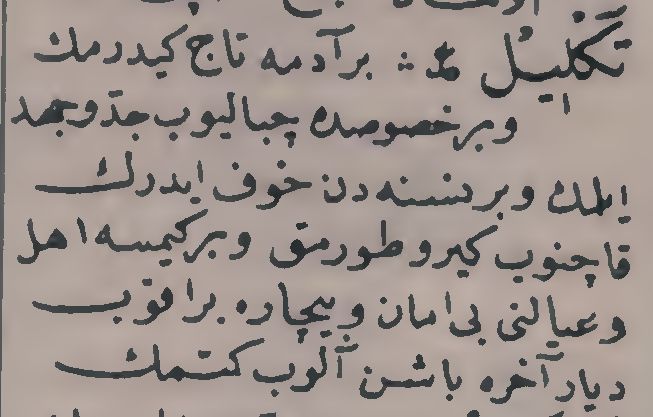 تَكْلِيلْ بر آدمه تاج كيدرمك
وبر خصوصده چباليوب جدّ وجهد
ايلمك وبر نسنه دن خوف ايدرك
قاچنوب كيرو طورمق وبر كيمسه اهل
وعيالنى بى امان وبيچاره براقوب
ديار آخره باشن آلوب كتمك